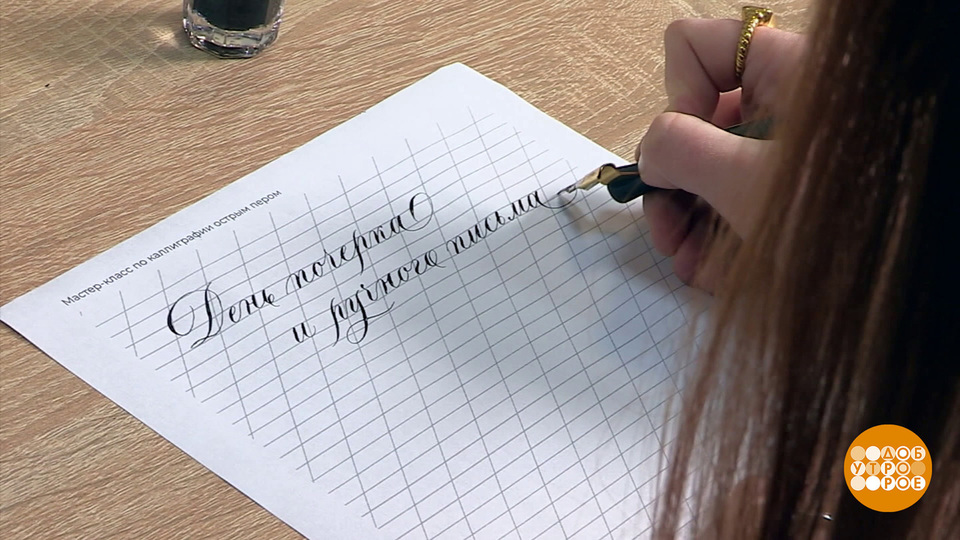 Мастер-класс по каллиграфии острым пером
День почерка
и ручного письма
ДОБ
УТРО
РОЕ